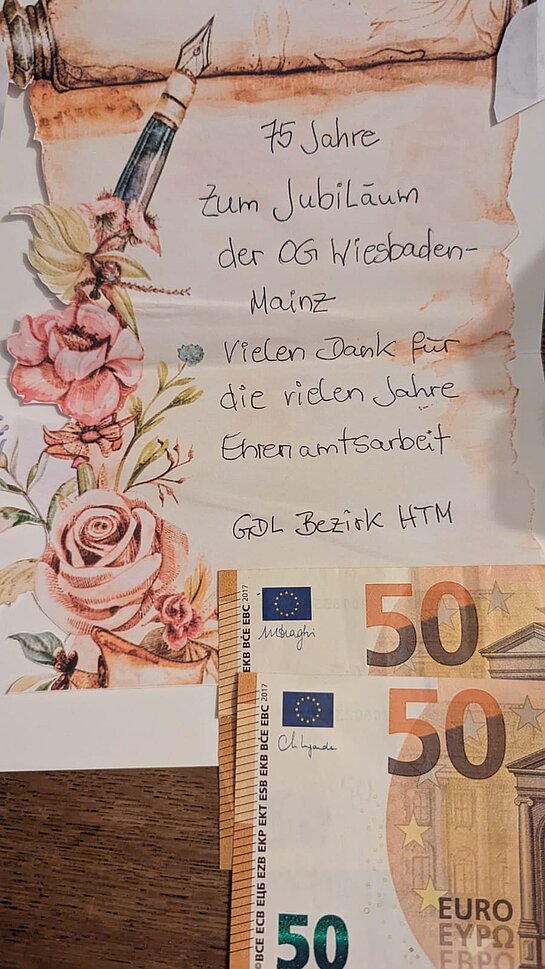 75 Jahre
Zum Jubiläum
der OG Wiesbaden-
Mainz
Vielen Dank für
die vielen Jahre
Ehrenamtsarbeit
GDL Bezirk HTM
50
EKB BCE EBC 2017
50
BCE ECB ЕЦБ EZB EKP EKT ESB EKB BĊE EBC 2017
50
EURO
ΕΥΡΩ
ЕВРО